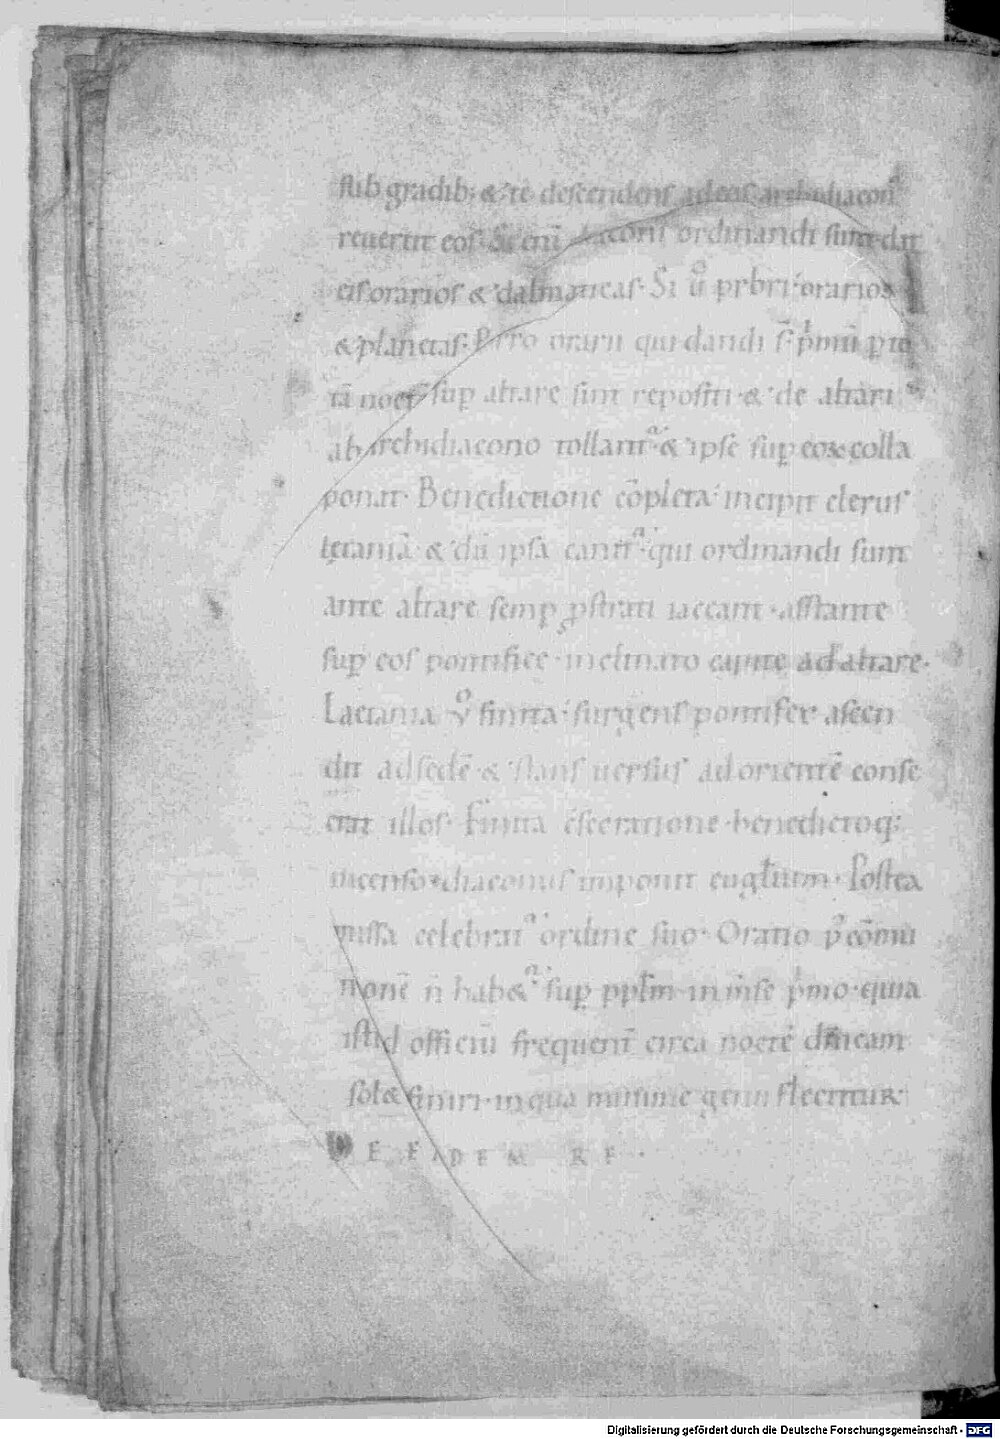 sub gradib; & te descendens ad eos archidiacon̄
reuertit eos. Si eni diaconi ordinandi sunt dat
eis orarios & dalmaticas. Si ů prbri orarios
& planetas. orarii qui dandi s̄ pͥmū p to
tā noctē sup altare sint repositi. & de altari
ab archidiacono tollant. & ipse sup eoꝝ colla
ponat. Benedictione cōpleta. incipit clerus
letaniā. & dū ipsā cant. qui ordinandi sunt
ante altare semp pstrati iaceant. asstante
sup eos pontifice. inclinato capite ad altare.
Laetania ů finita. surgens pontifex ascen
dit ad sedē. & stans uersus ad orientē conse
crat illos. Finita cōsecratione. benedictoq;
incenso. diaconus imponit eugłium. Postea
missa celebrat ordine suo. Oratio p cōmu
nionē n̄ hab& sup ppłm in mse pͥmo. quia
istud officiū frequent circa noctē dn̄icam
sol& finiri. in qua minime genu flectitur.
DE EADEM RE.
Digitalisierung gefördert durch die Deutsche Forschungsgemeinschaft - DFG